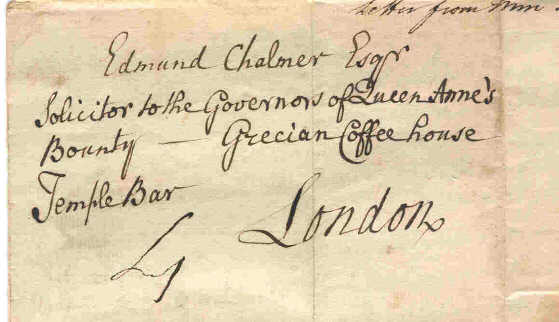 Letter from
Edmund Chalmer Esqr
Solicitor to the Governors of Queen Anne's
Bounty — Grecian Coffee house
Temple Bar
London